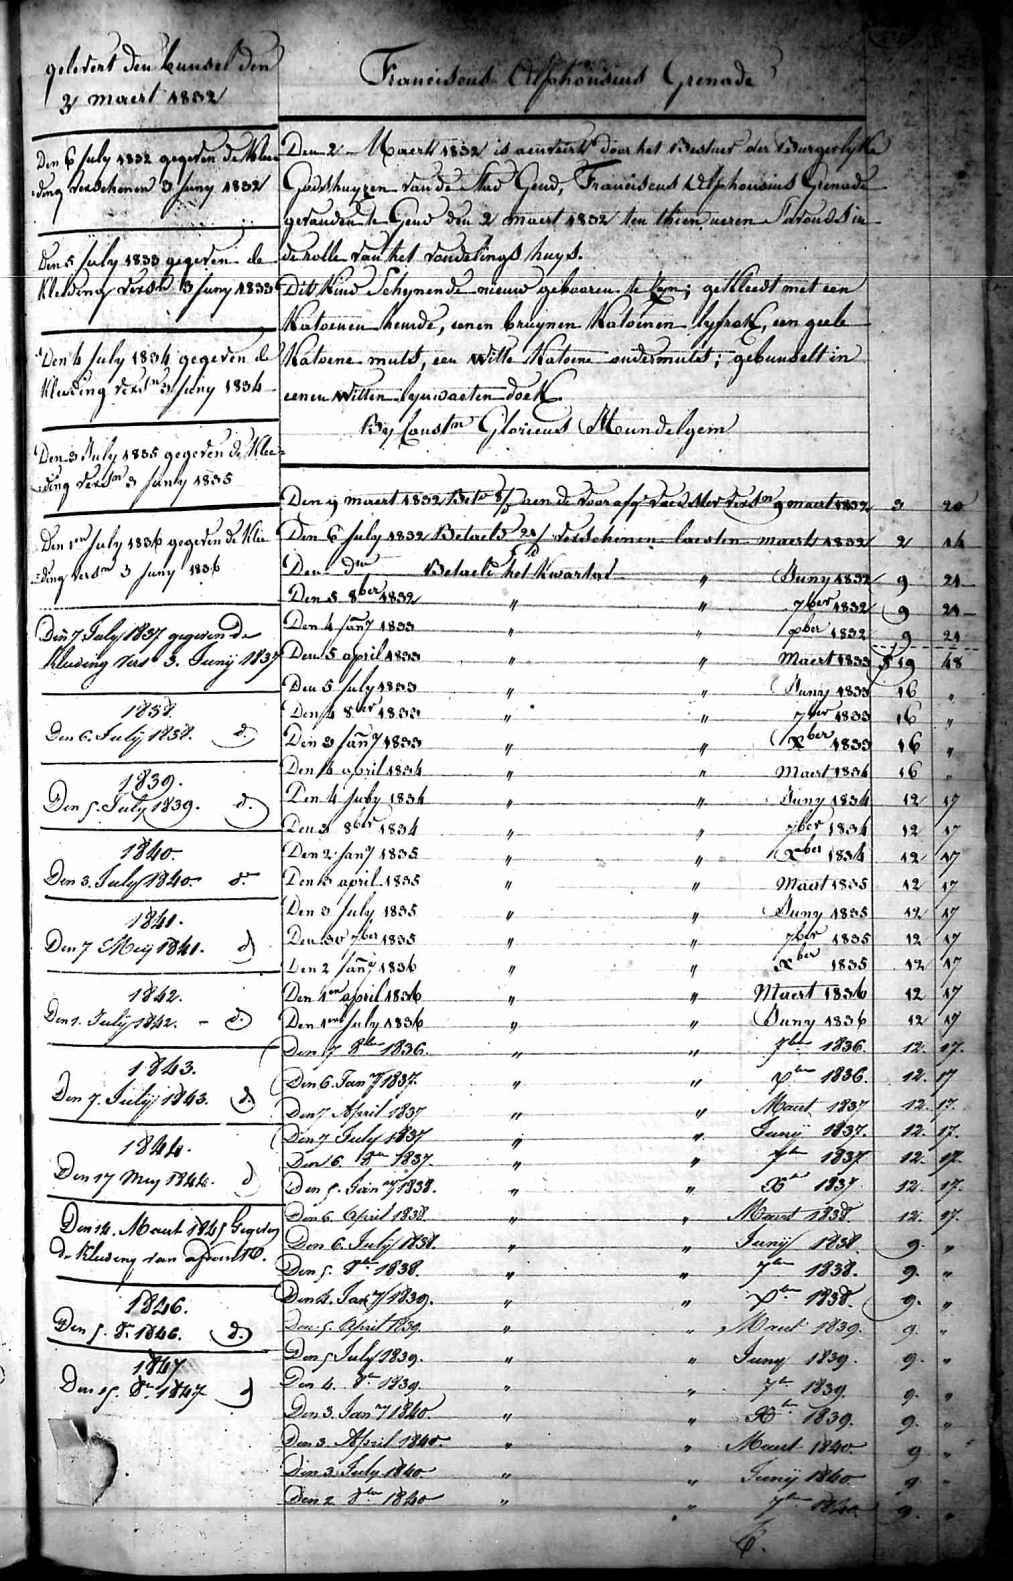 gelevert den bunsel den
3 maert 1832
Den 6 july 1832 gegeven de klee=
=ding verschenen 3 juny 1832
Den 5 july 1833 gegeven de
kleeding versn 3 juny 1833
Den 4 july 1834 gegeven de
kleeding versn 3 juny 1834
Den 3 July 1835 gegeven de klee=
=ding versn 3 juny 1835
Den 1en july 1836 gegeven de klee
=ding versn 3 juny 1836
Den 7 July 1837 gegeven de
kleeding vers 3. Junij 1837
1838.
Den 6. Julij 1838. d.
1839.
Den 5. July 1839. d.
1840.
Den 3. July 1840. d.
1841.
Den 7 Meij 1841. d
1842.
Den 1. Julij 1842. - d.
1843.
Den 7. Julij 1843. d.
1844.
Den 17 Mey 1844. d
Den 14. Maert 1845 Gegeven
de kleeding van
1846.
Den 5. 8r 1846. d.
1847
Den 15. 8r 1847 d
Franciscus Alphonsius Grenade
Den 2 Maert 1832 is aenveert door het Bestuer der Burgerlyke
Godshuyzen van de Stad Gend, Franciscus Alphonsius Grenade
gevonden te Gend den 2 maert 1832 ten thien ueren s'avonds in
de rolle van het vondelings huys.
Dit kind Schynende nieuw gebooren te zyn; gekleedt met een
katoenen hemde, eenen bruynen katoenen lyfrok, een geele
katoene muts, een witte katoene ondermuts; gebunselt in
eenen witten lynwaeten doek.
By Constn Glorieus Mundelgem
Den 9 maert 1832 Bete aen de voorafge voedster versn 9 maert 1832 3 20
Den 6 July 1832 Betaeld verschenen laesten maert 1832 2 14
Den dto Betaeld het kwartael " Juny 1832 9 21
Den 5 8ber 1832 " " 7ber 1832 9 21
Den 4 jany 1833 " " xber 1832 9 21
Den 5 april 1833 " " Maert 1833 19 48
Den 5 july 1833 " " Juny 1833 16 "
Den 4 8ber 1833 " " 7ber 1833 16 "
Den 3 jany 1833 " " xber 1833 16 "
Den 4 april 1834 " " Maert 1834 16 "
Den 4 july 1834 " " Juny 1834 12 17
Den 3 8ber 1834 " " 7ber 1834 12 17
Den 2 jany 1835 " " xber 1834 12 17
Den 3 april 1835 " " Maert 1835 12 17
Den 3 july 1835 " " Juny 1835 12 17
Den 30 7ber 1835 " " 7ber 1835 12 17
Den 2 jany 1836 " " xber 1835 12 17
Den 1en april 1836 " " Maert 1836 12 17
Den 1en july 1836 " " Juny 1836 12 17
Den 7 8ber 1836. " " 7ber 1836. 12. 17.
Den 6. Jany 1837. " " xber 1836. 12. 17
Den 7 April 1837 " " Maert 1837 12. 17.
Den 7 July 1837 " " Junij 1837. 12. 17.
Den 6. 8ber 1837. " " 7ber 1837 12. 17.
Den 5. Jany 1838. " " Xber 1837 12. 17.
Den 6. April 1838. " " Maert 1838 12. 17.
Den 6. July 1838. " " Junij 1838. 9. "
Den 5. 8ber 1838. " " 7ber 1838. 9. "
Den 4. Jany 1839. " " xber 1838. 9. "
Den 5. April 1839. " " Maert 1839. 9. "
Den 5 July 1839. " " Juny 1839. 9. "
Den 4. 8r 1839. " " 7r 1839. 9. "
Den 3. Jany 1840. " " Xr 1839. 9. "
Den 3. April 1840. " " Maert 1840. 9 "
Den 3 July 1840. " " Junij 1840 9. "
Den 2 8ber 1840 " " 7ber 1840. 9. "